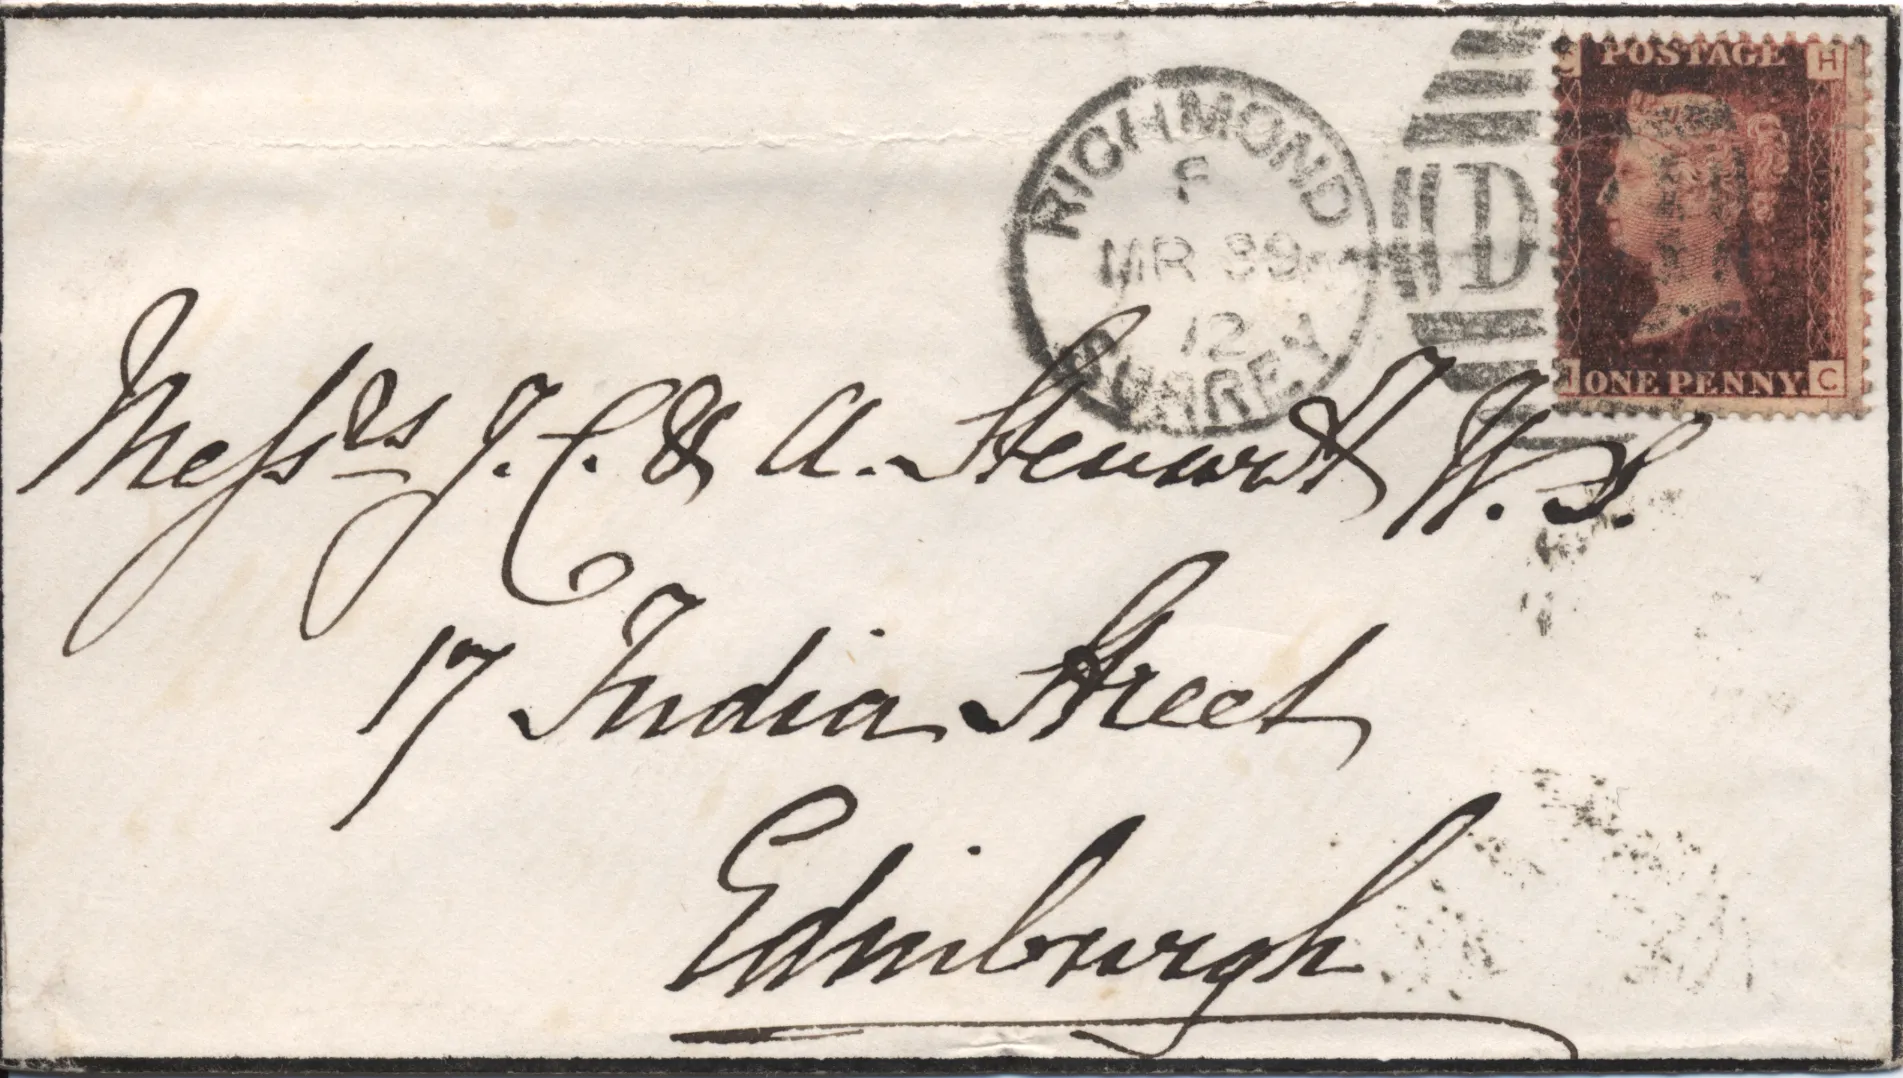 POSTAGE
H
ONE PENNY.
C
RICHMOND
F
MR 39
12
SURREY
D
Messrs. J. C. & A. Steuart W. S.
17 India Street
Edinburgh